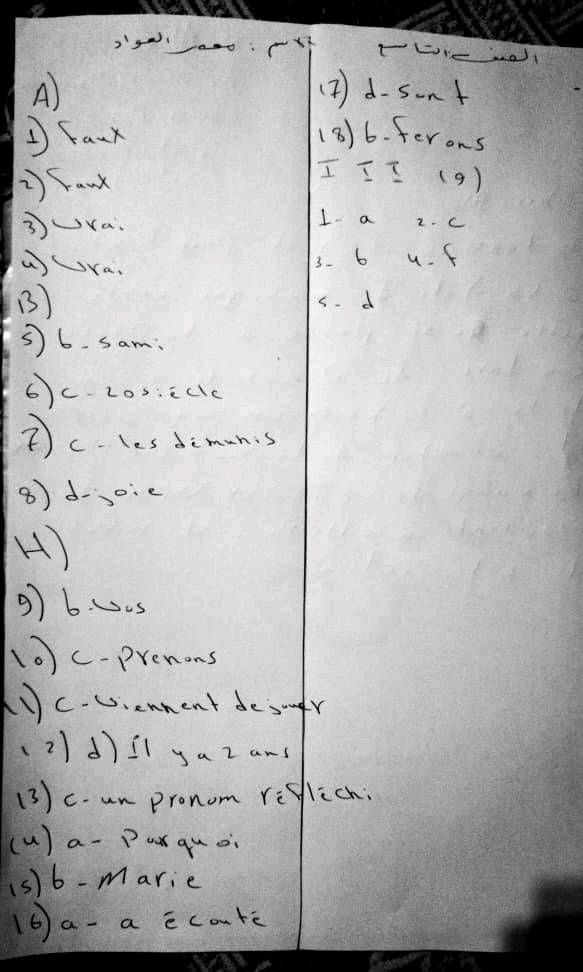 الصف التاسع
الاسم : معمر العواد
A)
1) Faux
2) Faux
3) Vrai
4) Vrai
B)
5) b - sami
6) c - 20 siècle
7) c - les démunis
8) d - joie
H)
9) b - Vos
10) c - Prenons
11) c - Viennent de jouer
12) d) Il y a 2 ans
13) c - un pronom réfléchi
14) a - Pourquoi
15) b - Marie
16) a - a écouté
17) d - Sont
18) b - Ferons
III (19)
1- a 2- c
3- b 4- f
5- d